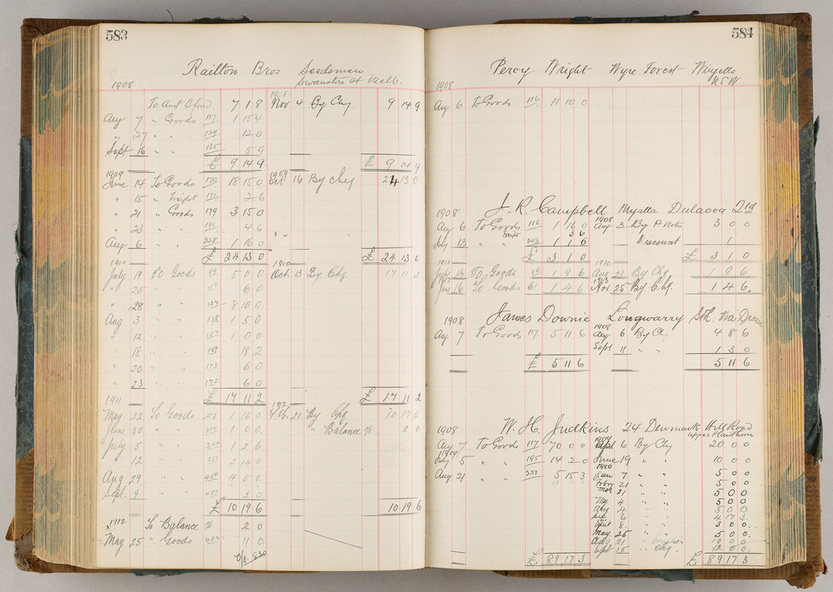 583
Railton Bros Seedsmen
Swanston St Melb.
1908
To Acct 7 1 8 1908 Nov 4 By Chq 9 14 9
Aug 7 " Goods 117 1 15 4
" 27 " " 12 0
Sept 16 " " 135 5 9
£ 9 14 9 £ 9 14 9
1909
June 14 To Goods 170 18 15 0 1909 Oct 16 By Chq 24 13 0
" 15 " Freight 171 2 6
" 21 " Goods 179 3 15 0
" 23 " " 4 6
Aug 6 " " 228 1 16 0
£ 24 13 0 £ 24 13 0
1910 1910
July 19 To Goods 5 0 0 Oct 13 By Chq 17 11 2
" 25 " " 6 0
" 28 " " 8 10 0
Aug 3 " " 138 1 5 0
" 12 " " 1 0 0
" 18 " " 18 2
" 20 " " 6 0
" 23 " " 6 0
£ 17 11 2 £ 17 11 2
1911
May 22 To Goods 1 16 0 21 By Chq 10 17 6
June 30 " " 1 0 0 " Balance 2 0
July 5 " " 1 2 6
" 12 " " 2 14 0
Aug 29 " " 4 5 0
Sept 9 " " 2 0
£ 10 19 6 10 19 6
1912 To Balance 2 0
May 25 " Goods 11 0
584
Percy Wright Wyre Forest Winyella
NSW
1908
Aug 6 To Goods 116 11 10 0
1908 J. R. Campbell Myalla Dulacca Qld
Aug 6 To Goods 116 1 16 0 1908 Aug 3 By P Note 3 0 0
3 6
13 " " 203 1 1 6 Discount 1
£ 3 1 0 £ 3 1 0
To Goods 1 9 6 1910 Aug 23 By Chq 1 9 6
16 To Goods 61 1 4 6 Nov 25 By Chq 1 4 6
1908 James Downie Longwarry Sth
Aug 7 To Goods 117 5 11 6 1908 Aug 6 By Ch 4 8 6
Sept 11 " " 1 3 0
£ 5 11 6 5 11 6
1908 W. H. Judkins 24 Denmark Hill Road
Upper Hawthorn
Aug 7 To Goods 117 70 0 0 Sept 6 By Chq 20 0 0
1909 July 5 " " 195 14 2 0 June 19 " " 10 0 0
Aug 21 " " 237 5 15 3 1910 Jan 7 " " 5 0 0
21 " " 5 0 0
21 " " 5 0 0
May 4 " " 5 0 0
4 " " 5 0 0
6 " " 4 17 3
8 " " 3 0 0
May 25 " " 5 0 0
Sept 15 " Chq 12 0 0
£ 89 17 3 £ 89 17 3